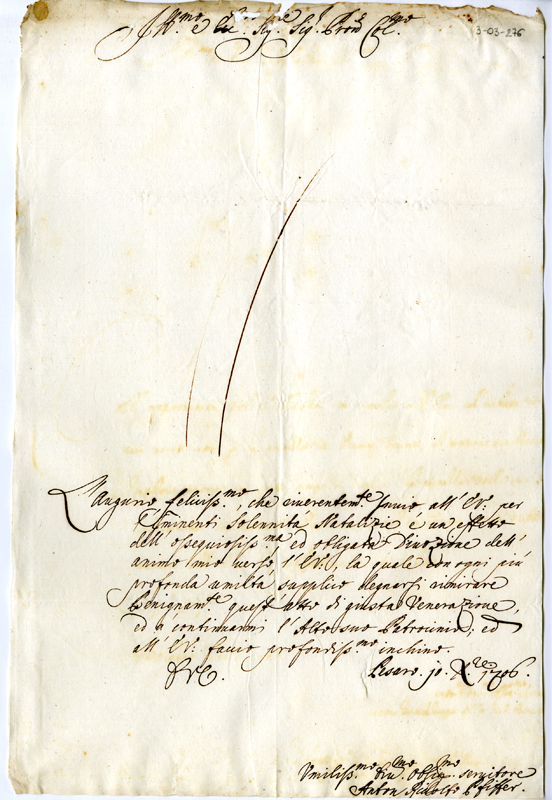 Ill.mo e Sig.re Sig. Pron Col.mo
3-03-276
L'Augurio feliciss.mo, che riverentem.te faccio all' EV: per
l'imminenti Solennità Natalizie è un' effetto
dell' ossequiosiss.ma, ed obligata Divozione dell'
animo mio verso l' EV:, la quale con ogni più
profonda umiltà supplico degnarsi rimirare
benignam.te quest' atto di giusta Venerazione,
ed à continuarmi l'Alto suo Patrocinio; ed
all' EV: faccio profondiss.mo inchino.
Pesaro. Xre 1706.
Vmiliss.mo Div.mo Obblig.mo servitore
Anton Ridolfo Pfiffer.